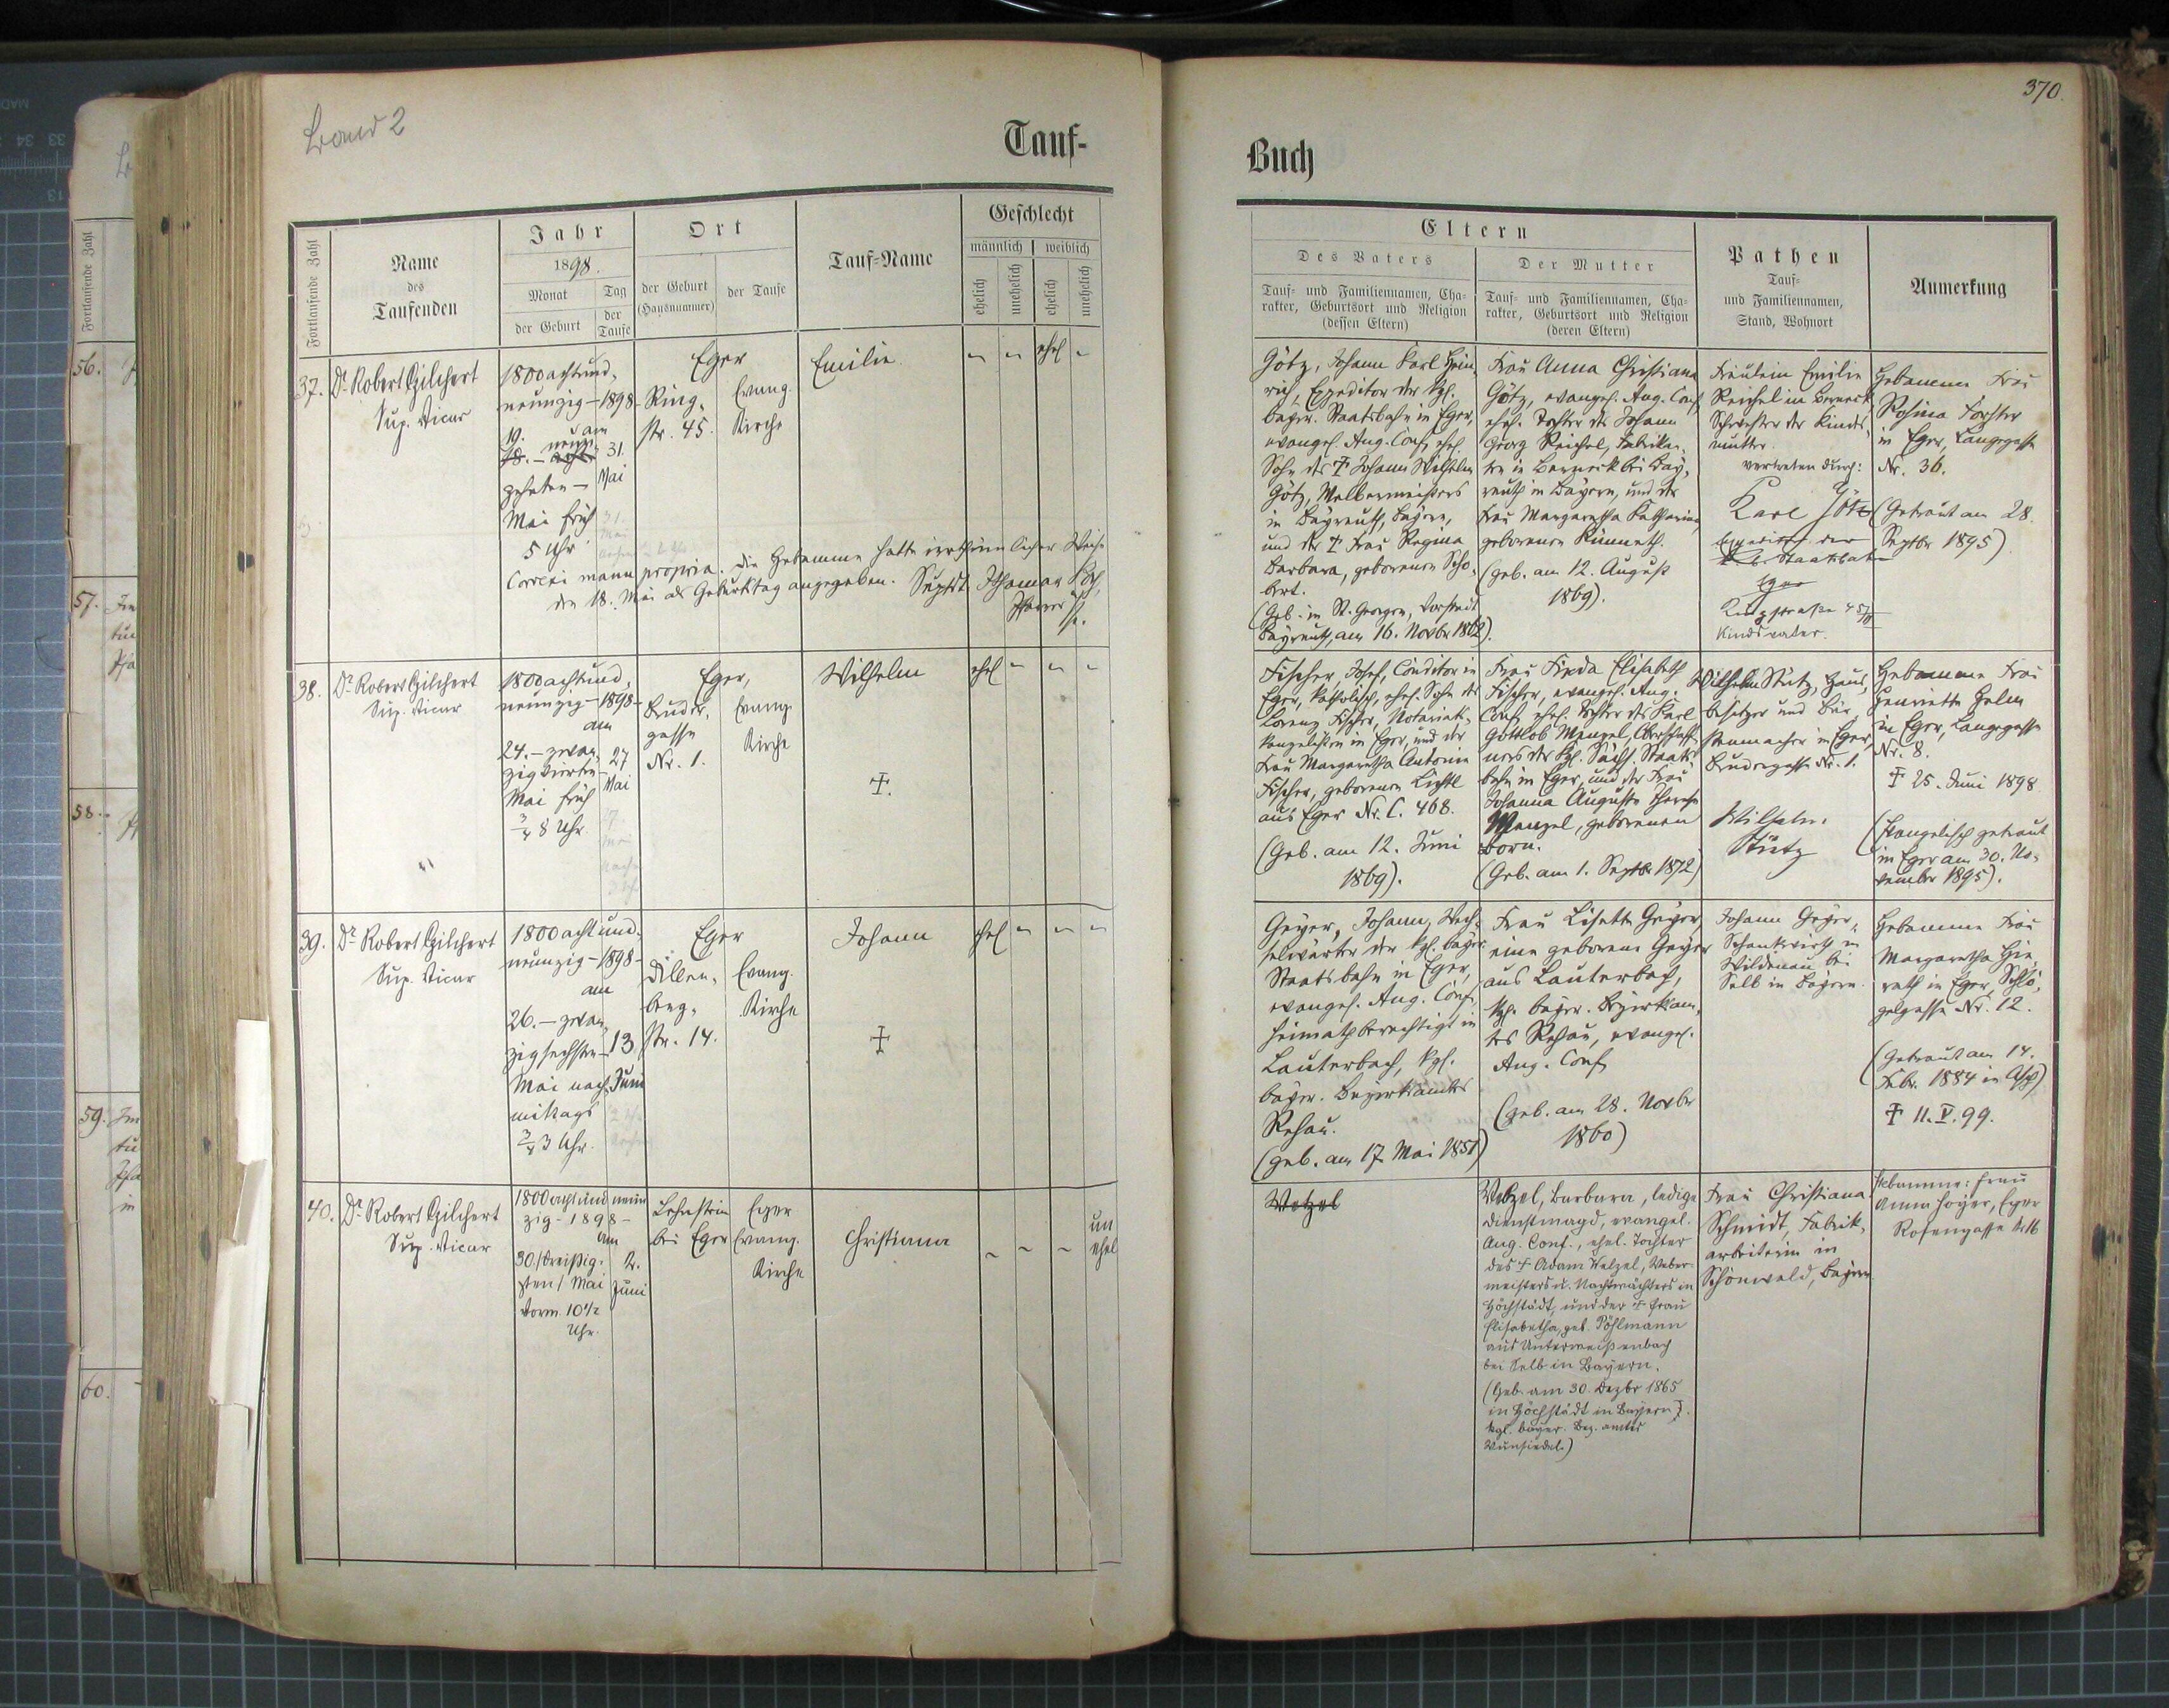 Band 2
Tauf-
Fortlaufende Zahl
Name
des
Taufenden
Jahr
1898.
Monat
der Geburt
Tag
der
Taufe
Ort
der Geburt
(Hausnummer)
der Taufe
Tauf-Name
Geschlecht
männlich
weiblich
ehelich
unehelich
ehelich
unehelich
37.
Dr. Robert Gilchert
Sup. Vicar
1800 achtund-
neunzig – 1898
am
19. neun-
18. – acht-
zehnten –
Mai früh
5 Uhr
31.
Mai
Eger
Ring-
str. 45.
Evang.
Kirche
Emilie
ehel
Correxi manu propria. Die Hebamme hatte irrthümlicher Weise
den 18. Mai als Geburtstag angegeben.
Pfarrer
38.
Dr. Robert Gilchert
Sup. Vicar
1800 achtund-
neunzig – 1898 –
am
24. – zwan-
zigvierten –
Mai früh
¾ 8 Uhr.
27
Mai
Eger,
Bruder-
gasse
Nr. 1.
Evang.
Kirche
Wilhelm
†.
ehel
39.
Dr. Robert Gilchert
Sup. Vicar
1800 achtund-
neunzig – 1898 –
am
26. – zwan-
zigsechsten –
Mai nach-
mittags
¾ 3 Uhr.
13.
Juni
Eger
Dillen-
berg-
str. 14.
Evang.
Kirche
Johann
†
ehel
40.
Dr. Robert Gilchert
Sup. Vicar
1800 achtundneun
zig – 1898 –
am
30. /dreißig-
sten/ Mai
Vorm. 10½
Uhr.
2.
Juni
Lehnstein
bei Eger
Eger
Evang.
Kirche
Christiana
un
ehel
56.
57.
58.
59.
60.
370.
Buch
Eltern
Des Vaters
Tauf- und Familiennamen, Cha-
rakter, Geburtsort und Religion
(dessen Eltern)
Der Mutter
Tauf- und Familiennamen, Cha-
rakter, Geburtsort und Religion
(deren Eltern)
Pathen
Tauf-
und Familiennamen,
Stand, Wohnort
Anmerkung
Götz, Johann Karl Hein-
rich, Expeditor der kgl.
bayer. Staatsbahn in Eger,
evangel. Aug. Conf., ehel.
Sohn des † Johann Wilhelm
Götz, Melbermeisters
in Bayreuth, Bayern,
und der † Frau Regina
Barbara, geborenen Scho-
bert.
(Geb. in St. Georgen, Vorstadt
Bayreuth, am 16. Novbr 1862).
Frau Anna Christiana
Götz, evangel. Aug. Conf.
ehel. Tochter des Johann
Georg Reichel, Fabrikan-
ten in Berneck bei Bay-
reuth in Bayern, und der
Frau Margaretha Katharina,
geborenen Künneth.
(geb. am 12. August
1869).
Fräulein Emilie
Reichel in Berneck
Schwester der Kindes-
mutter.
vertreten durch:
Karl Götz
Expeditor der
k. b. Staatsbahn
Eger
Ringstraße 45/II
Kindsvater.
Hebamme Frau
Rosina Forster
in Eger, Langegasse
Nr. 36.
(Getraut am 28.
Septbr 1895)
Fischer, Josef, Conditor in
Eger, katholisch, ehel. Sohn des
Lorenz Fischer, Notariats-
kanzelisten in Eger, und der
Frau Margaretha Antonie
Fischer, geborenen Lichtl
aus Eger Nr. C. 468.
(Geb. am 12. Juni
1869).
Frau Frieda Elisabeth
Fischer, evangel. Aug.
Conf., ehel. Tochter des Karl
Gottlob Menzel, Oberschaff-
ners der kgl. Sächs. Staats-
bahn in Eger, und der Frau
Johanna Auguste Therese
Menzel, geborenen
Born.
(Geb. am 1. Septbr 1872)
Wilhelm Stütz, Haus-
besitzer und Bür-
stenmacher in Eger,
Brudergasse Nr. 1.
Wilhelm
Stütz
Hebamme Frau
Henriette Helm
in Eger, Langegasse
Nr. 8.
† 25. Juni 1898
(Evangelisch getraut
in Eger am 30. No-
vember 1895).
Geyer, Johann, Wech-
selwärter der kgl. bayer.
Staatsbahn in Eger,
evangel. Aug. Conf.
heimathberechtigt in
Lauterbach, kgl.
bayer. Bezirksamtes
Rehau.
(geb. am 17. Mai 1851)
Frau Lisette Geyer,
eine geborene Geyer
aus Lauterbach,
kgl. bayer. Bezirksam-
tes Rehau, evangel.
Aug. Conf.
(geb. am 28. Novbr
1860)
Johann Geyer,
Schankwirth in
Wildenau bei
Selb in Bayern.
Hebamme Frau
Margaretha Hie-
rath in Eger, Schlö-
gelgasse Nr. 12.
(Getraut am 14.
Febr. 1884 in Asch)
† 11. V. 99.
Wetzel
Wetzel, Barbara, ledige
Dienstmagd, evangel.
Aug. Conf., ehel. Tochter
des † Adam Wetzel, Weber-
meisters u. Nachtwächters in
Höchstädt, und der † Frau
Elisabetha, geb. Pöhlmann
aus Unterweißenbach
bei Selb in Bayern.
(Geb. am 30. Dezbr 1865
in Höchstädt in Bayern
kgl. bayer. Bez. amtes
Wunsiedel.)
Frau Christiana
Schmidt, Fabrik-
arbeiterin in
Schönwald, Bayern
Hebamme: Frau
Anna Hoyer, Eger
Rosengasse № 16